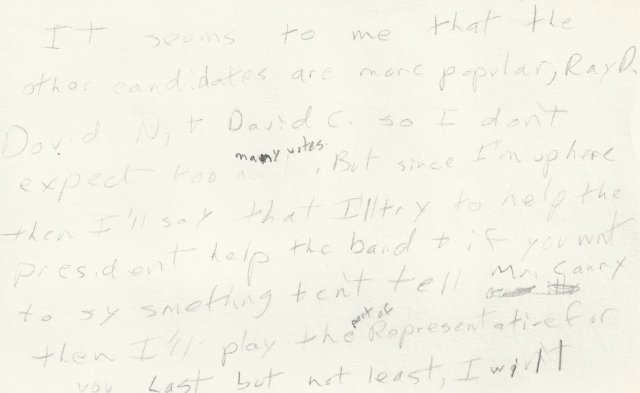 It seems to me that the
other candidates are more popular, Ray D.
David N, + David C. so I don't
many votes
expect too much, But since I'm up here
then I'll say that I'll try to help the
president help the band + if you wnt
to sy smething + cn't tell Mr. Canny
part of
then I'll play the Representative for
you Last but not least, I will